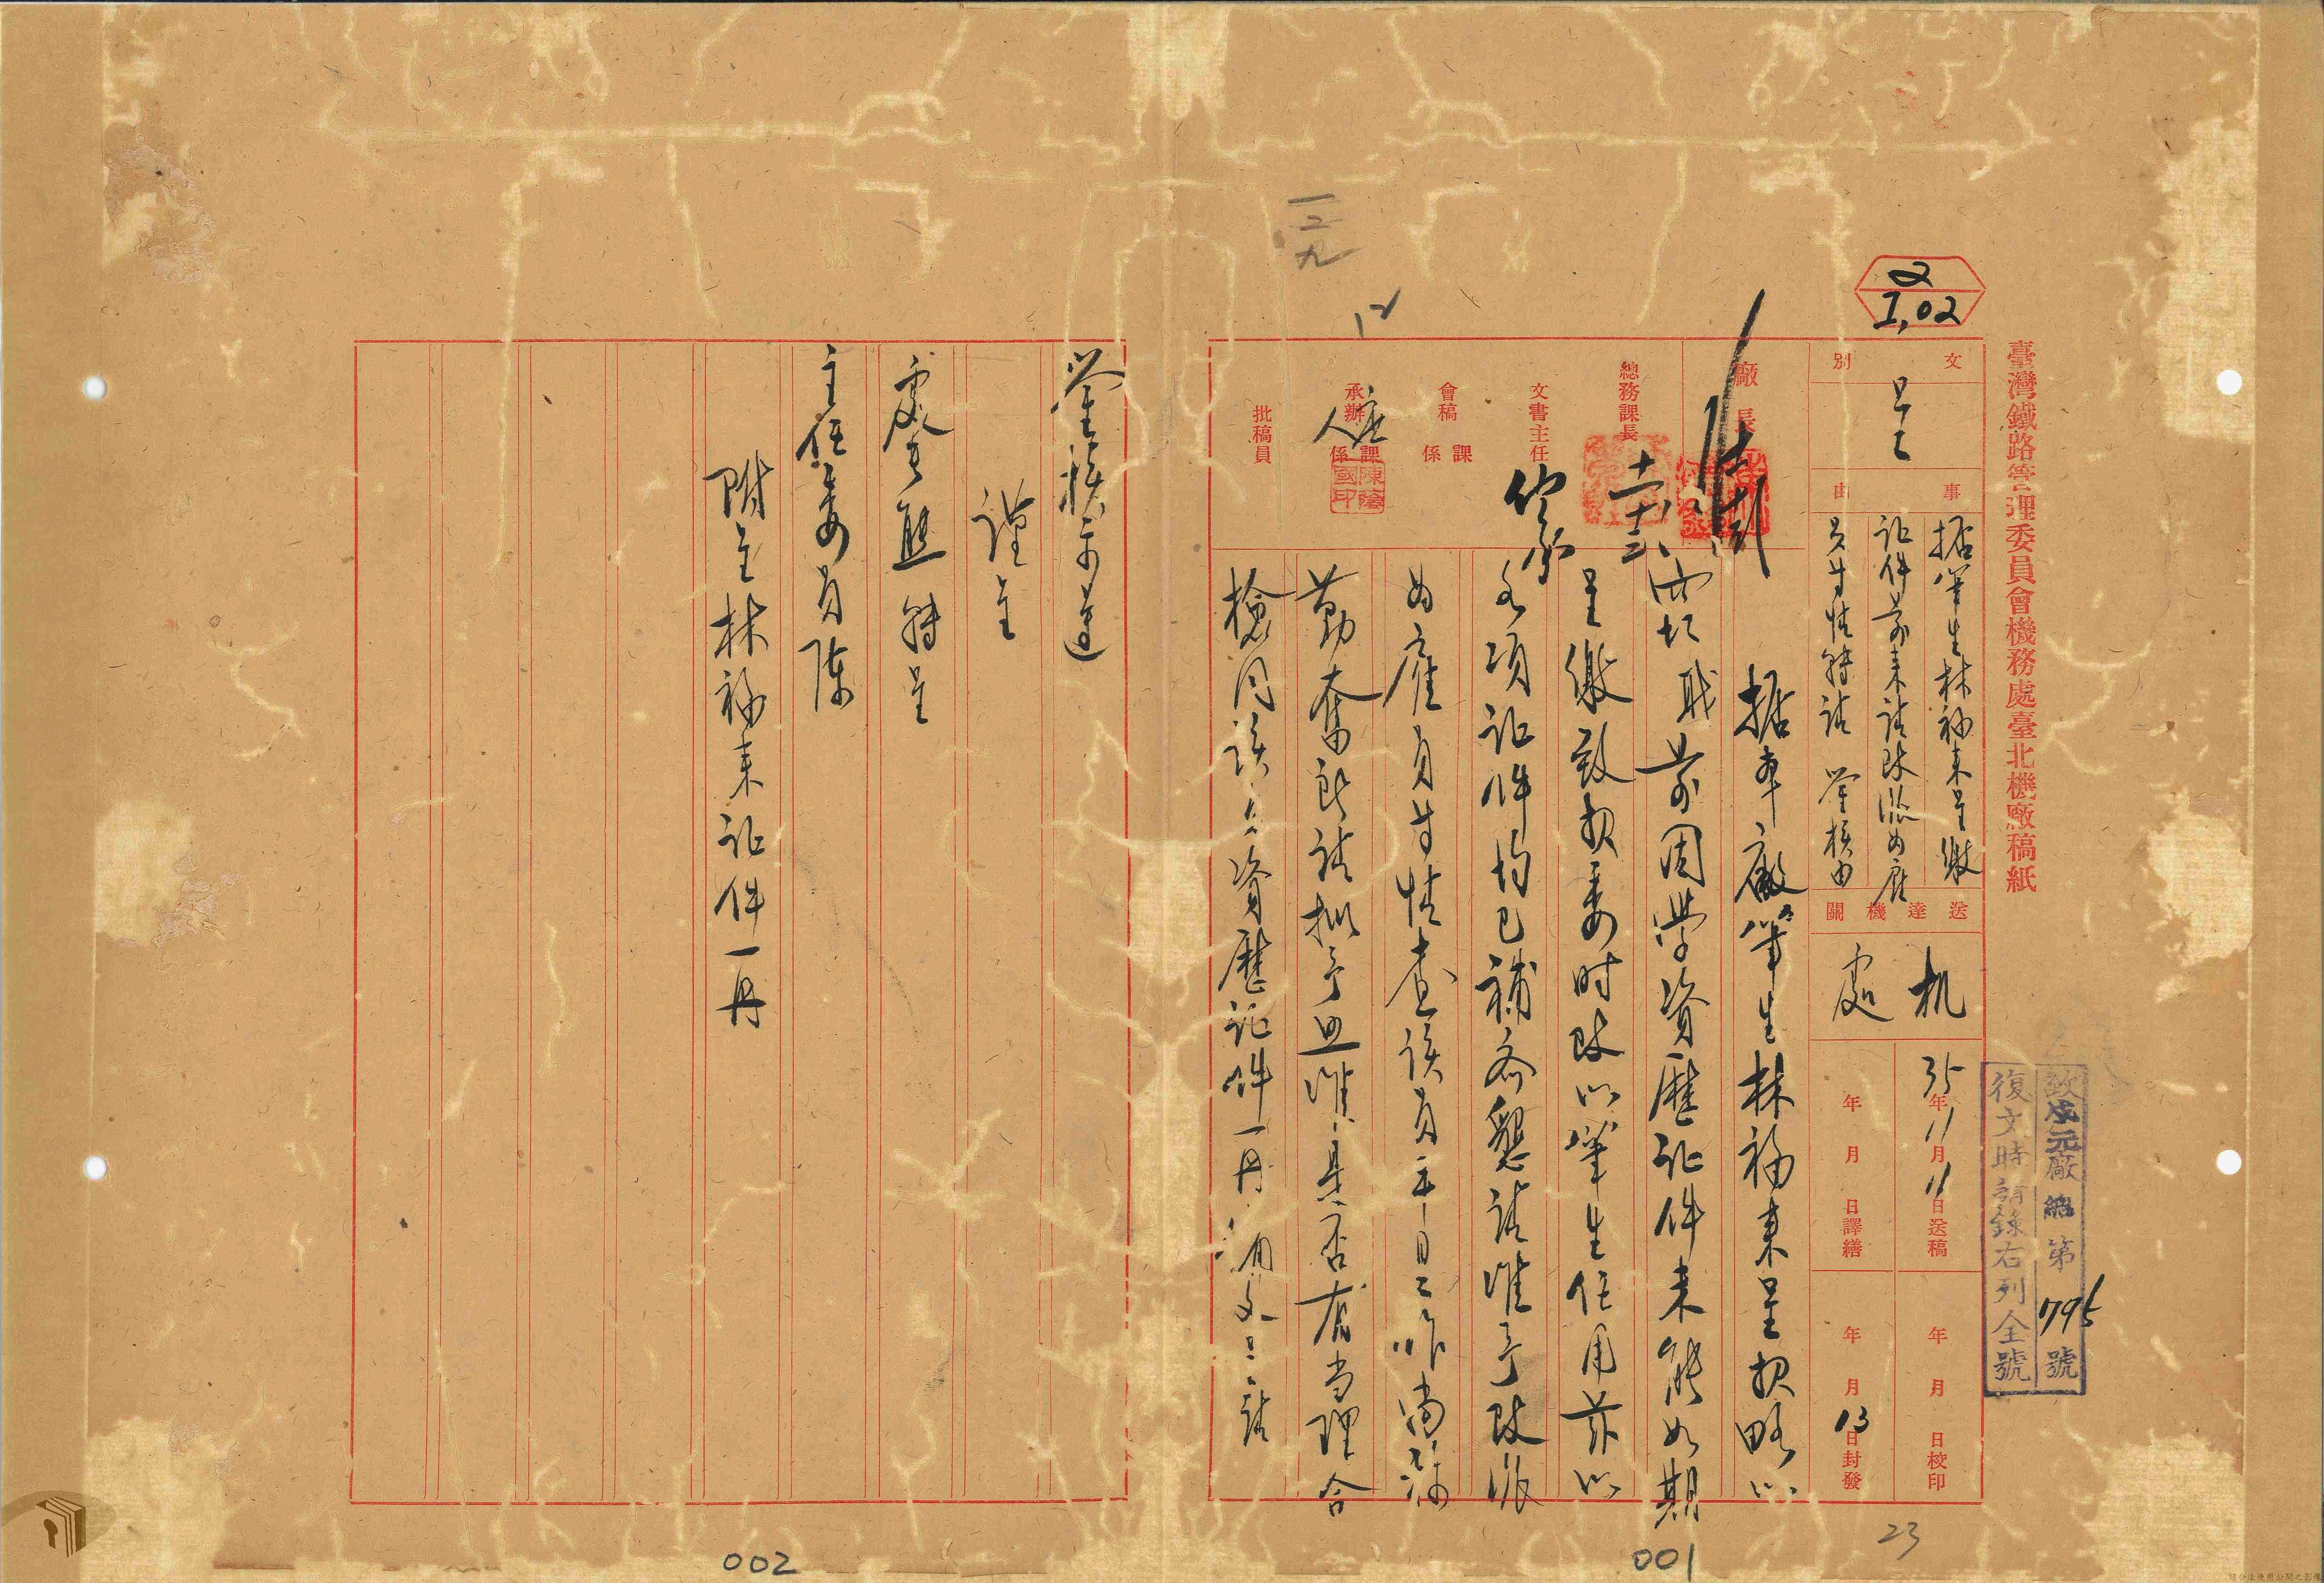 臺灣鐵路管理委員會機務處臺北機廠稿紙
2
I,02
文別
呈
事由
據筆生林福来呈繳
証件前来請改派為雇
員等情轉請 鑒核由
送達機關
机處
35年11月11日送稿
年月日譯繕
年月日校印
年月13日封發
致戌元廠總第1795號
復文時請錄右列全號
廠長
總務課長
十一、十三
文書主任
會稿 課係
承辦 課係
人
陳陰國印
批稿員
一二九
12
據本廠筆生林福来呈報略以
竊職前因學資歷証件未能如期
呈繳致報委時改以筆生任用茲以
各項証件均已補齊懇請准予改派
為雇員等情查該員平日工作尚稱
勤奮所請擬予照准是否有當理合
檢同該員資歷証件一冊備文呈請
鑒核示遵
謹呈
處長熊轉呈
主任委員陳
附呈林福来証件一冊
23
001
002